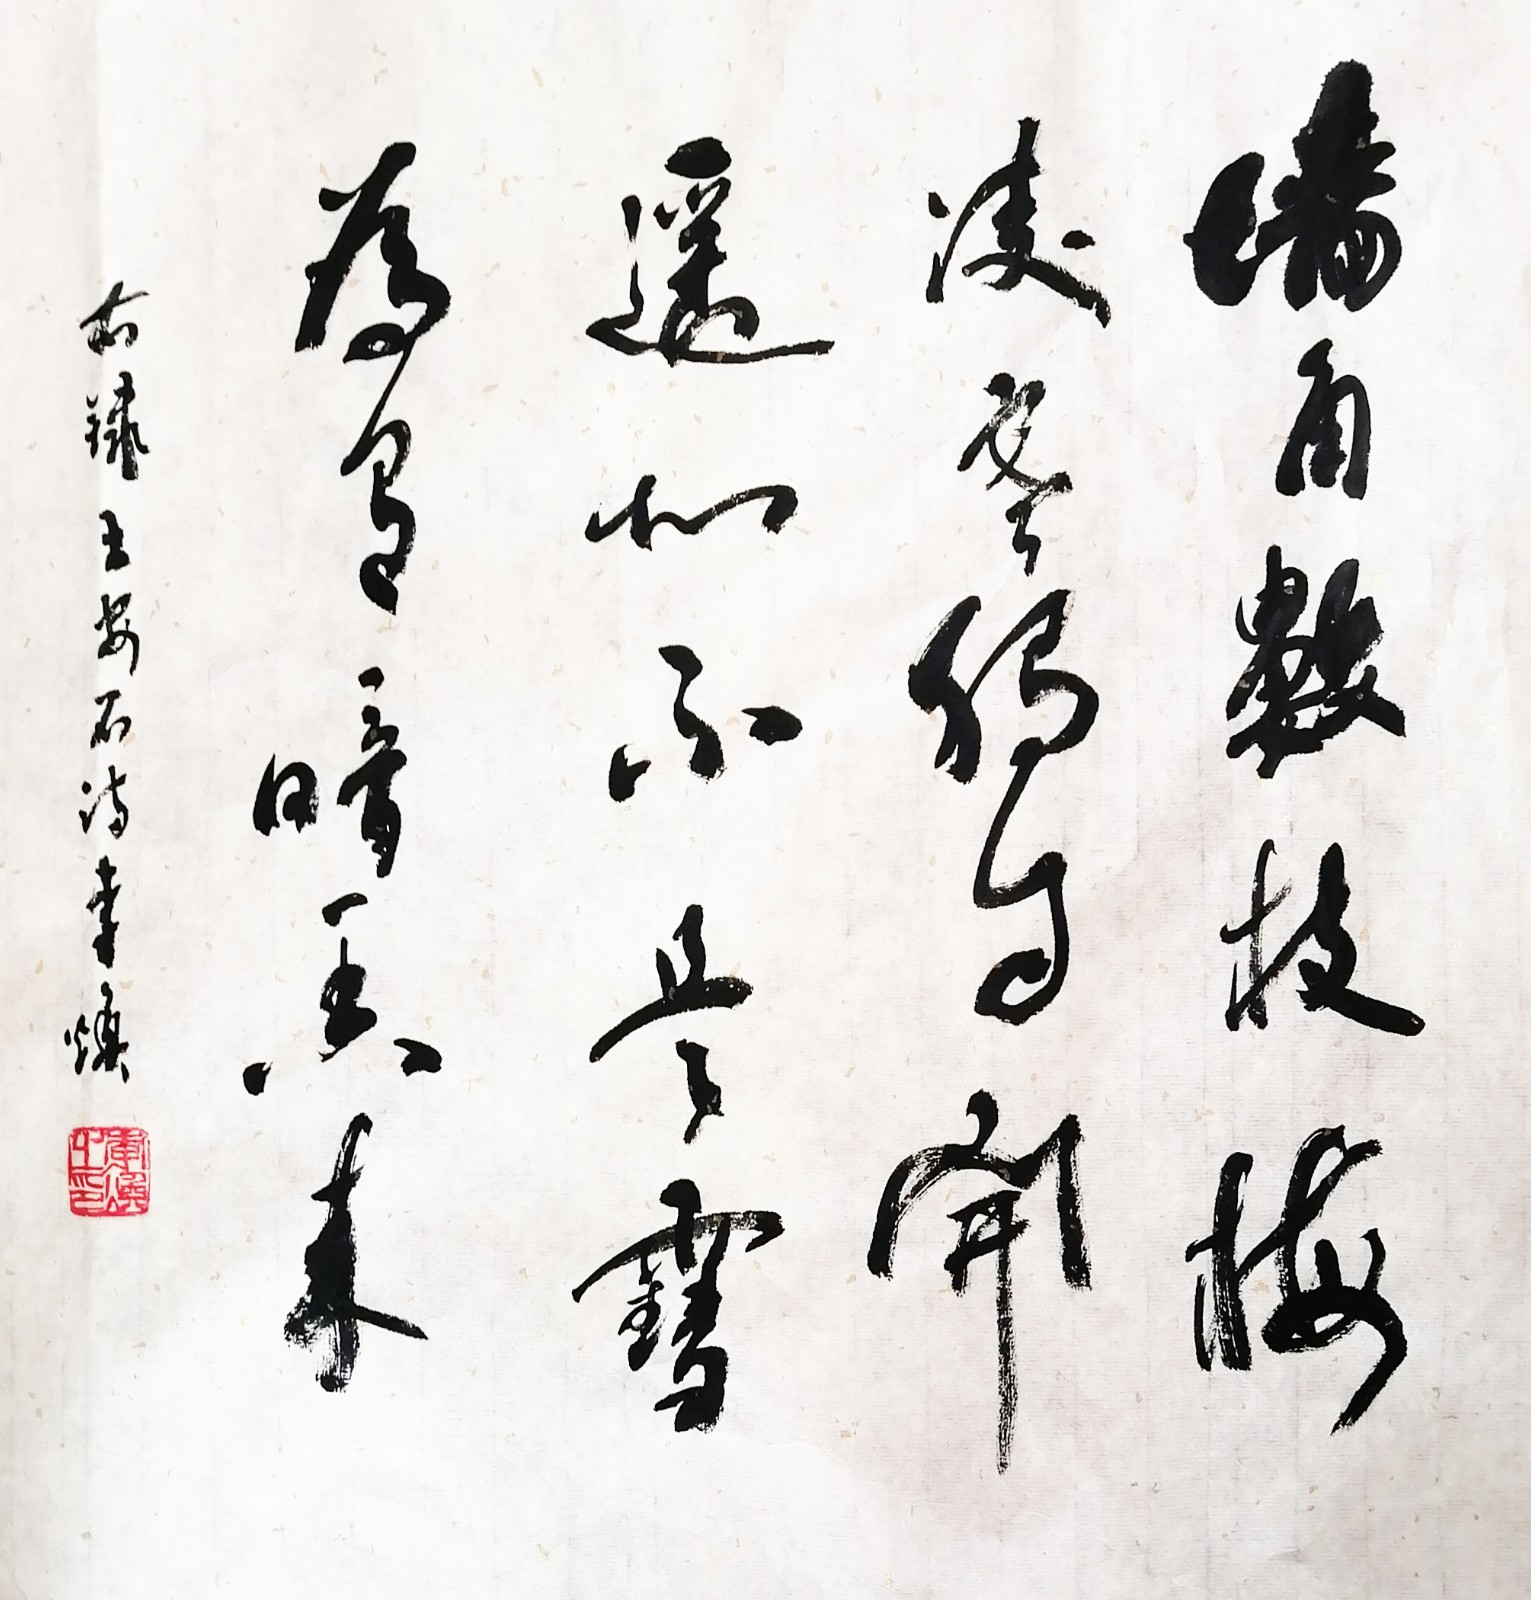 墙角数枝梅
凌寒独自開
遥知不是雪
为有暗香来
右録王安石诗李焕